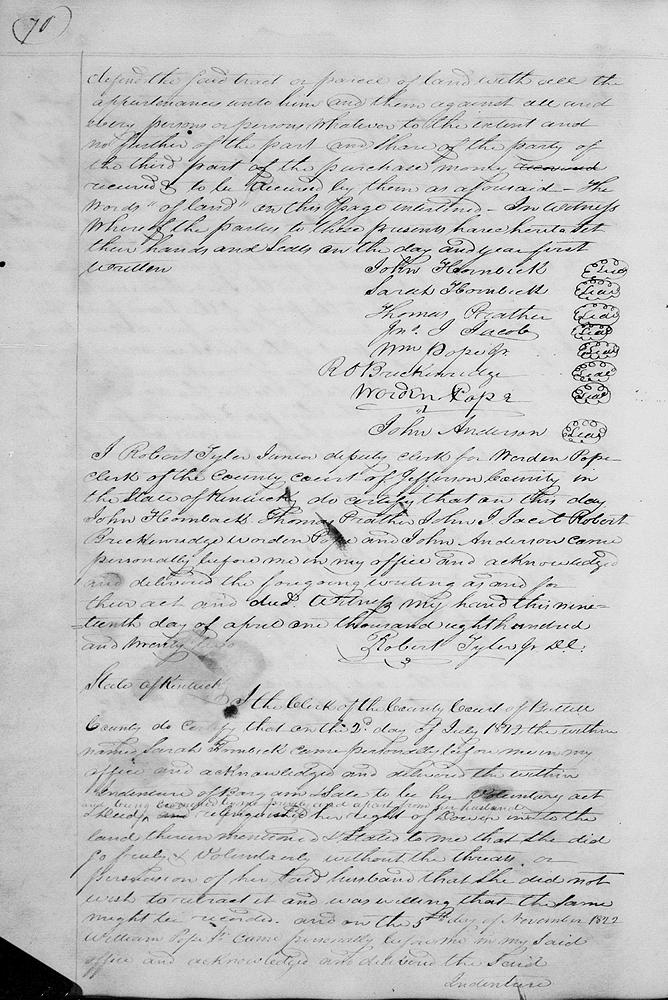 70
defend the said tract or parcel of land with all the
appurtenances unto him and them against all and
every person or persons whatever to the extent and
no further of the part and share of the party of
the third part of the purchase money received
received & to be received by them as aforesaid - The
words "of land" on this page interlined - In Witness
Whereof the parties to these presents have hereto set
their hands and seals on the day and year first
written
John Hornback Seal
Sarah Hornback Seal
Thomas Prather Seal
Jno. J Jacob Seal
Wm Pope Jr Seal
R Breckenridge Seal
Worden Pope Seal
John Anderson Seal
I Robert Tyler Junior deputy clerk for Worden Pope
clerk of the County court of Jefferson County in
the State of Kentucky do certify that on this day
John Hornback Thomas Prather John J Jacob Robert
Breckenridge Worden Pope and John Anderson came
personally before me in my office and acknowledged
and delivered the foregoing writing as and for
their act and deed. Witness my hand this nine-
teenth day of april one thousand eight hundred
and twenty two
Robert Tyler Jr D.C.
State of Kentucky
I the Clerk of the County Court of Bullitt
County do certify that on the 2d day of July 1822 the within
named Sarah Hornback came personally before me in my
office and acknowledged and delivered the within
Indenture of Bargain & Sale to be her Voluntary act
and being examined by me privily and apart from her husband
& Deed, and relinquished her right of Dower in to the
land therein mentioned & stated to me that she did
so freely & Voluntarily without the threats or
persuasion of her said husband that she did not
wish to retract it and was willing that the same
might be recorded. and on the 5th day of November 1822
William Pope Jr came personally before me in my said
office and acknowledged and delivered the said
Indenture